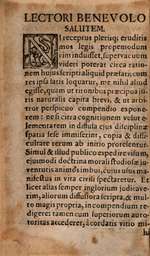 LECTORI BENEVOLO
SALUTEM.
NI receptus pleriq; eruditis
mos legis propemodum
vim induisset, supervacuum
videri poterat circa ratio-
nem hujus scripti aliqui præfari, cum
res ipsa satis loquatur, me nihil aliud
egisse, quàm ut omnibus præcipua ju-
ris naturalis capita brevi, & ut arbi-
tror perspicuo compendio expone-
rem: ne si citra cognitionem velut e-
lementarem in diffusa ejus disciplinæ
spatia sese immiserint, copia & diffi-
cultate rerum ab initio
Simul & illud publico expedire visum,
ejusmodi doctrina morali studiosæ ju-
ventutis animos imbui, cujus usus ma-
nifestus in vita civili spectaretur. Et
licet alias semper inglorium judicave-
rim, aliorum diffusiora scripta, & mul-
to magis propria, in compendium re-
digere: tamen cum superiorum auto-
ritas accederet,